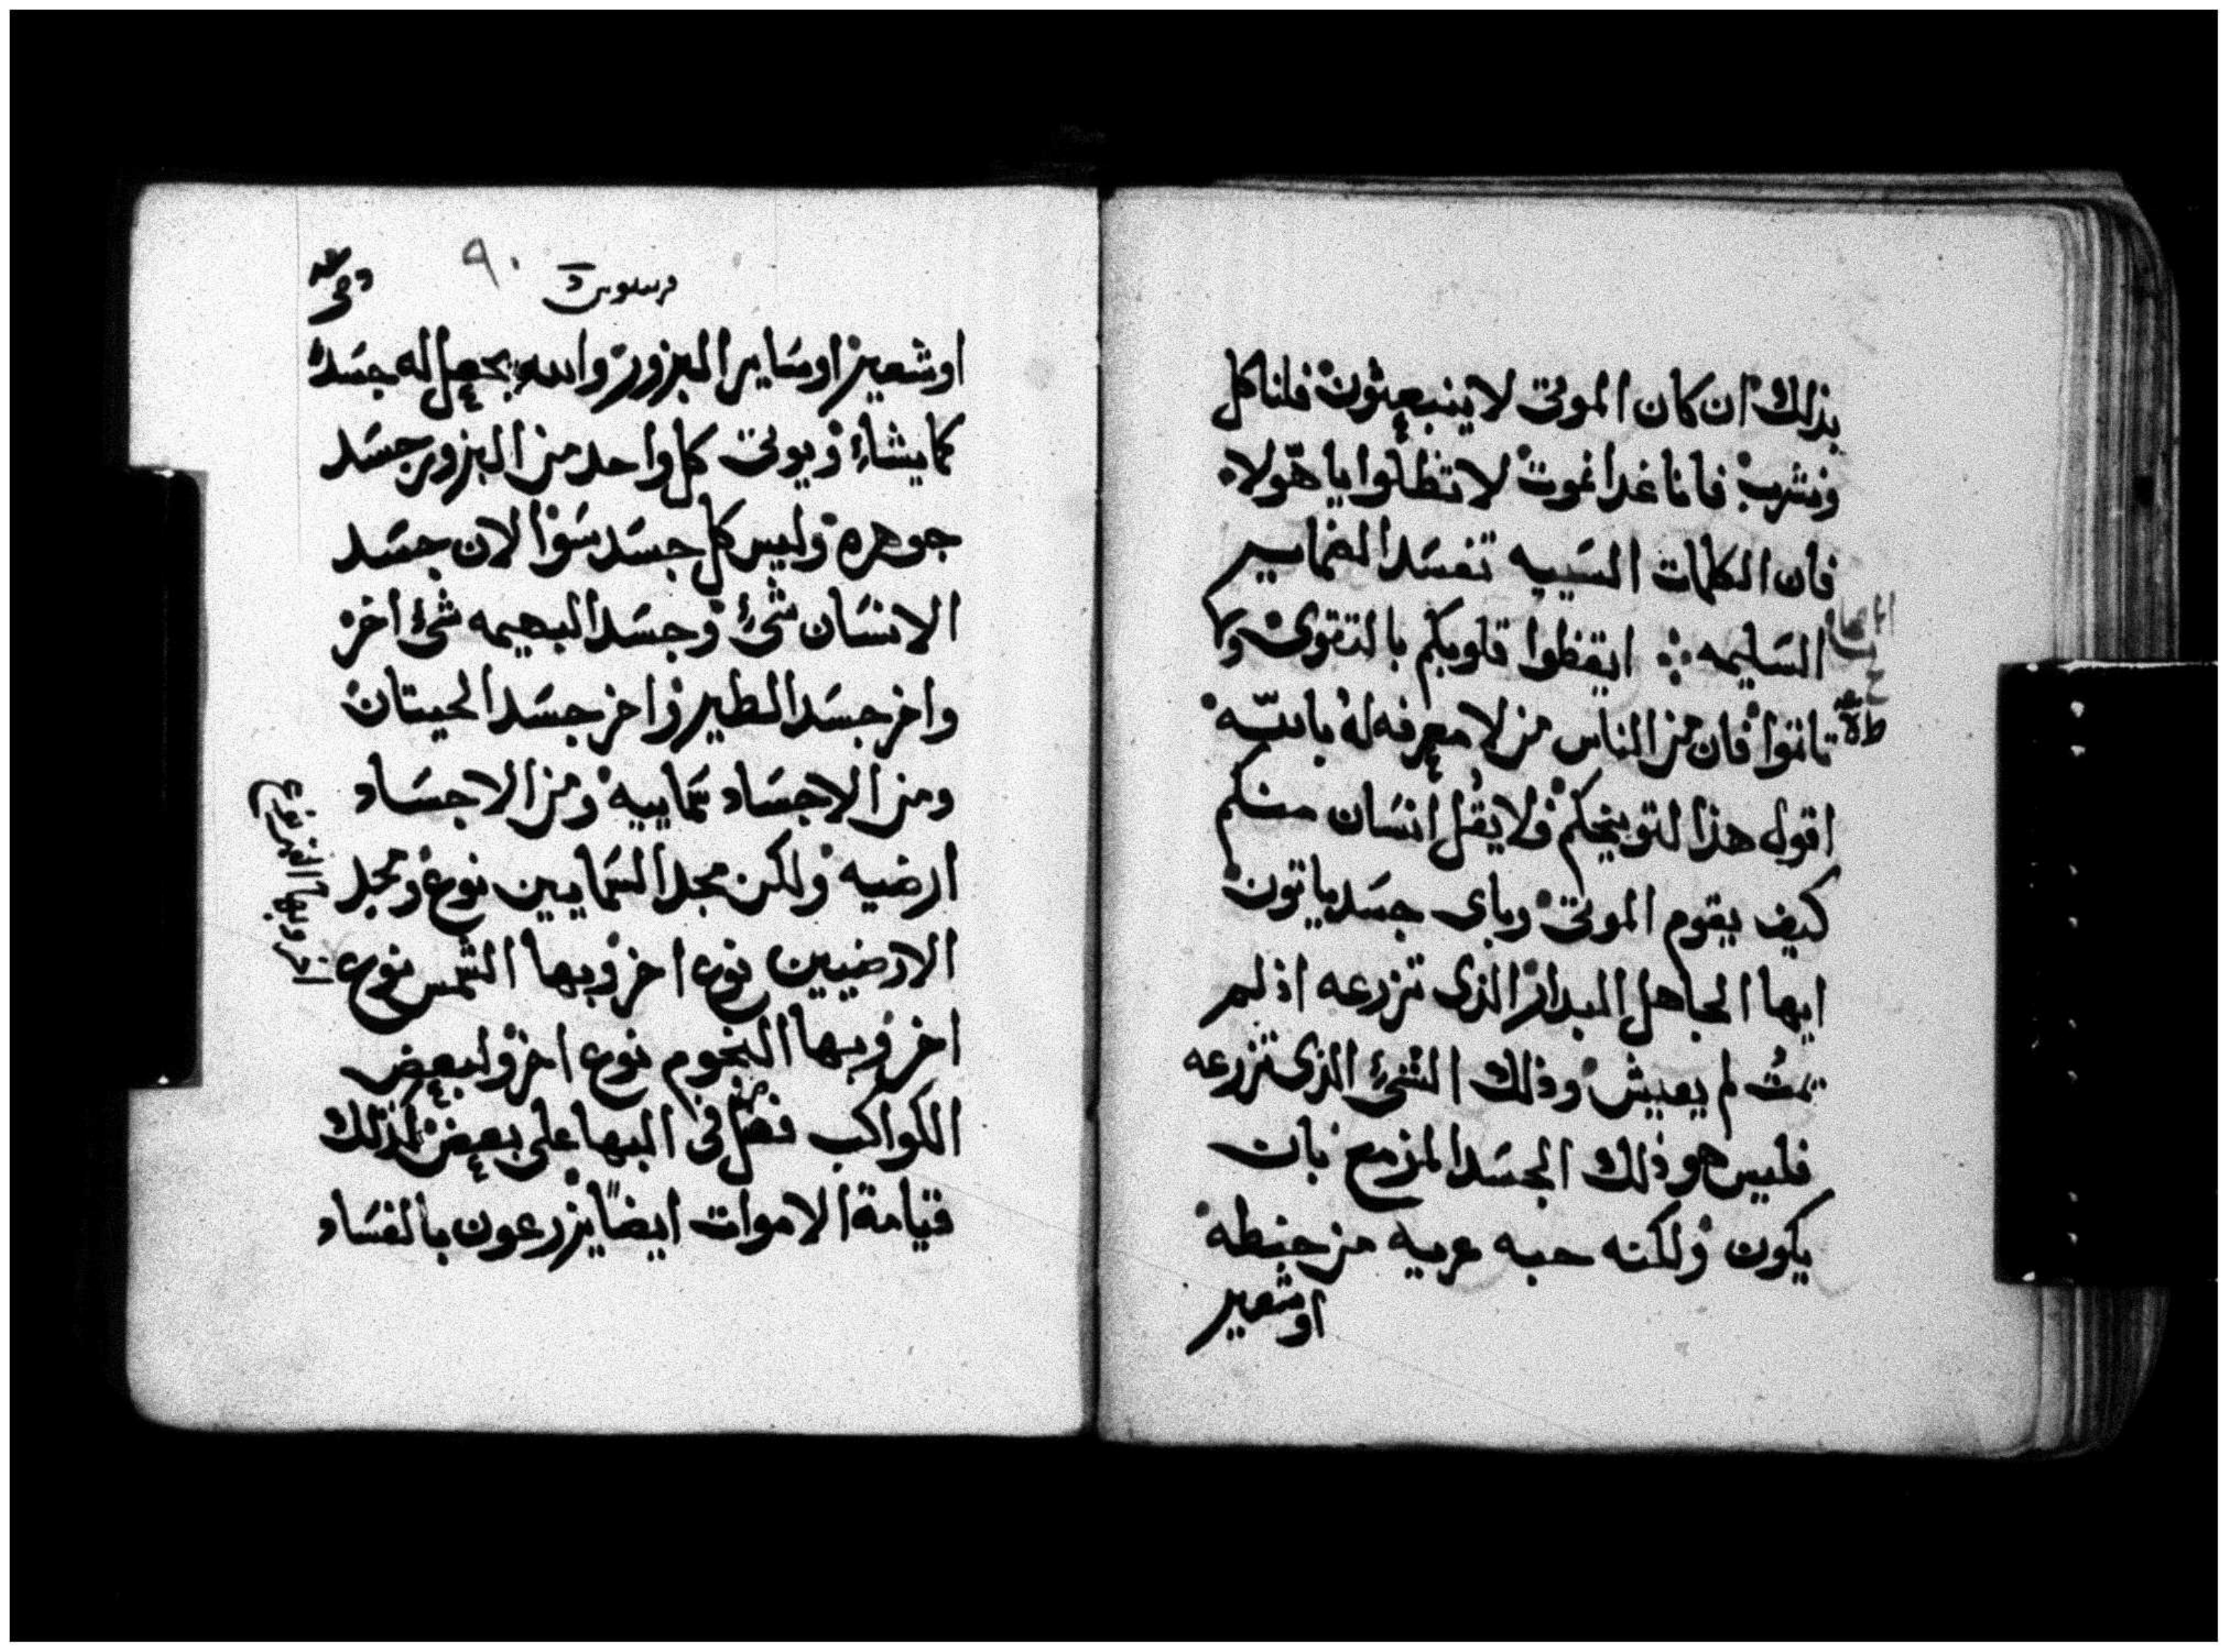 بذلك ان كان الموتى لا ينبعثون فلناكل
ونشرب فاننا غدا نموت لا تظلوا يا هولاء
فان الكلمات السييه تفسد الضماير
السليمه ايقظوا قلوبكم بالتقوى ولا
تاثموا فان من الناس من لا معرفه له بالله
اقول هذا لتوبيخكم فلا يقل انسان منكم
كيف يقوم الموتى وباى جسد ياتون
ايها الجاهل البدار الذى تزرعه اذ لم
يمت لم يعيش وذلك الشئ الذى تزرعه
فليس هو ذلك الجسد المزمع بان
يكون ولكنه حبه عريه من حنطه
او شعير
٩٠
او شعير او ساير البزور والله يجعل له جسدا
كما يشاء ويوتى كل واحد من البزور جسد
جوهره وليس كل جسد سوا لان جسد
الانسان شئ وجسد البهيمه شئ اخر
واخر جسد الطير واخر جسد الحيتان
ومن الاجساد سماييه ومن الاجساد
ارضيه ولكن مجد السماييين نوع ومجد
الارضيين نوع اخر وبها الشمس نوع
اخر وبها القمر نوع
اخر وبها النجوم نوع اخر ولبعض
الكواكب فضل فى البها على بعض لذلك
قيامة الاموات ايضا يزرعون بالفساد